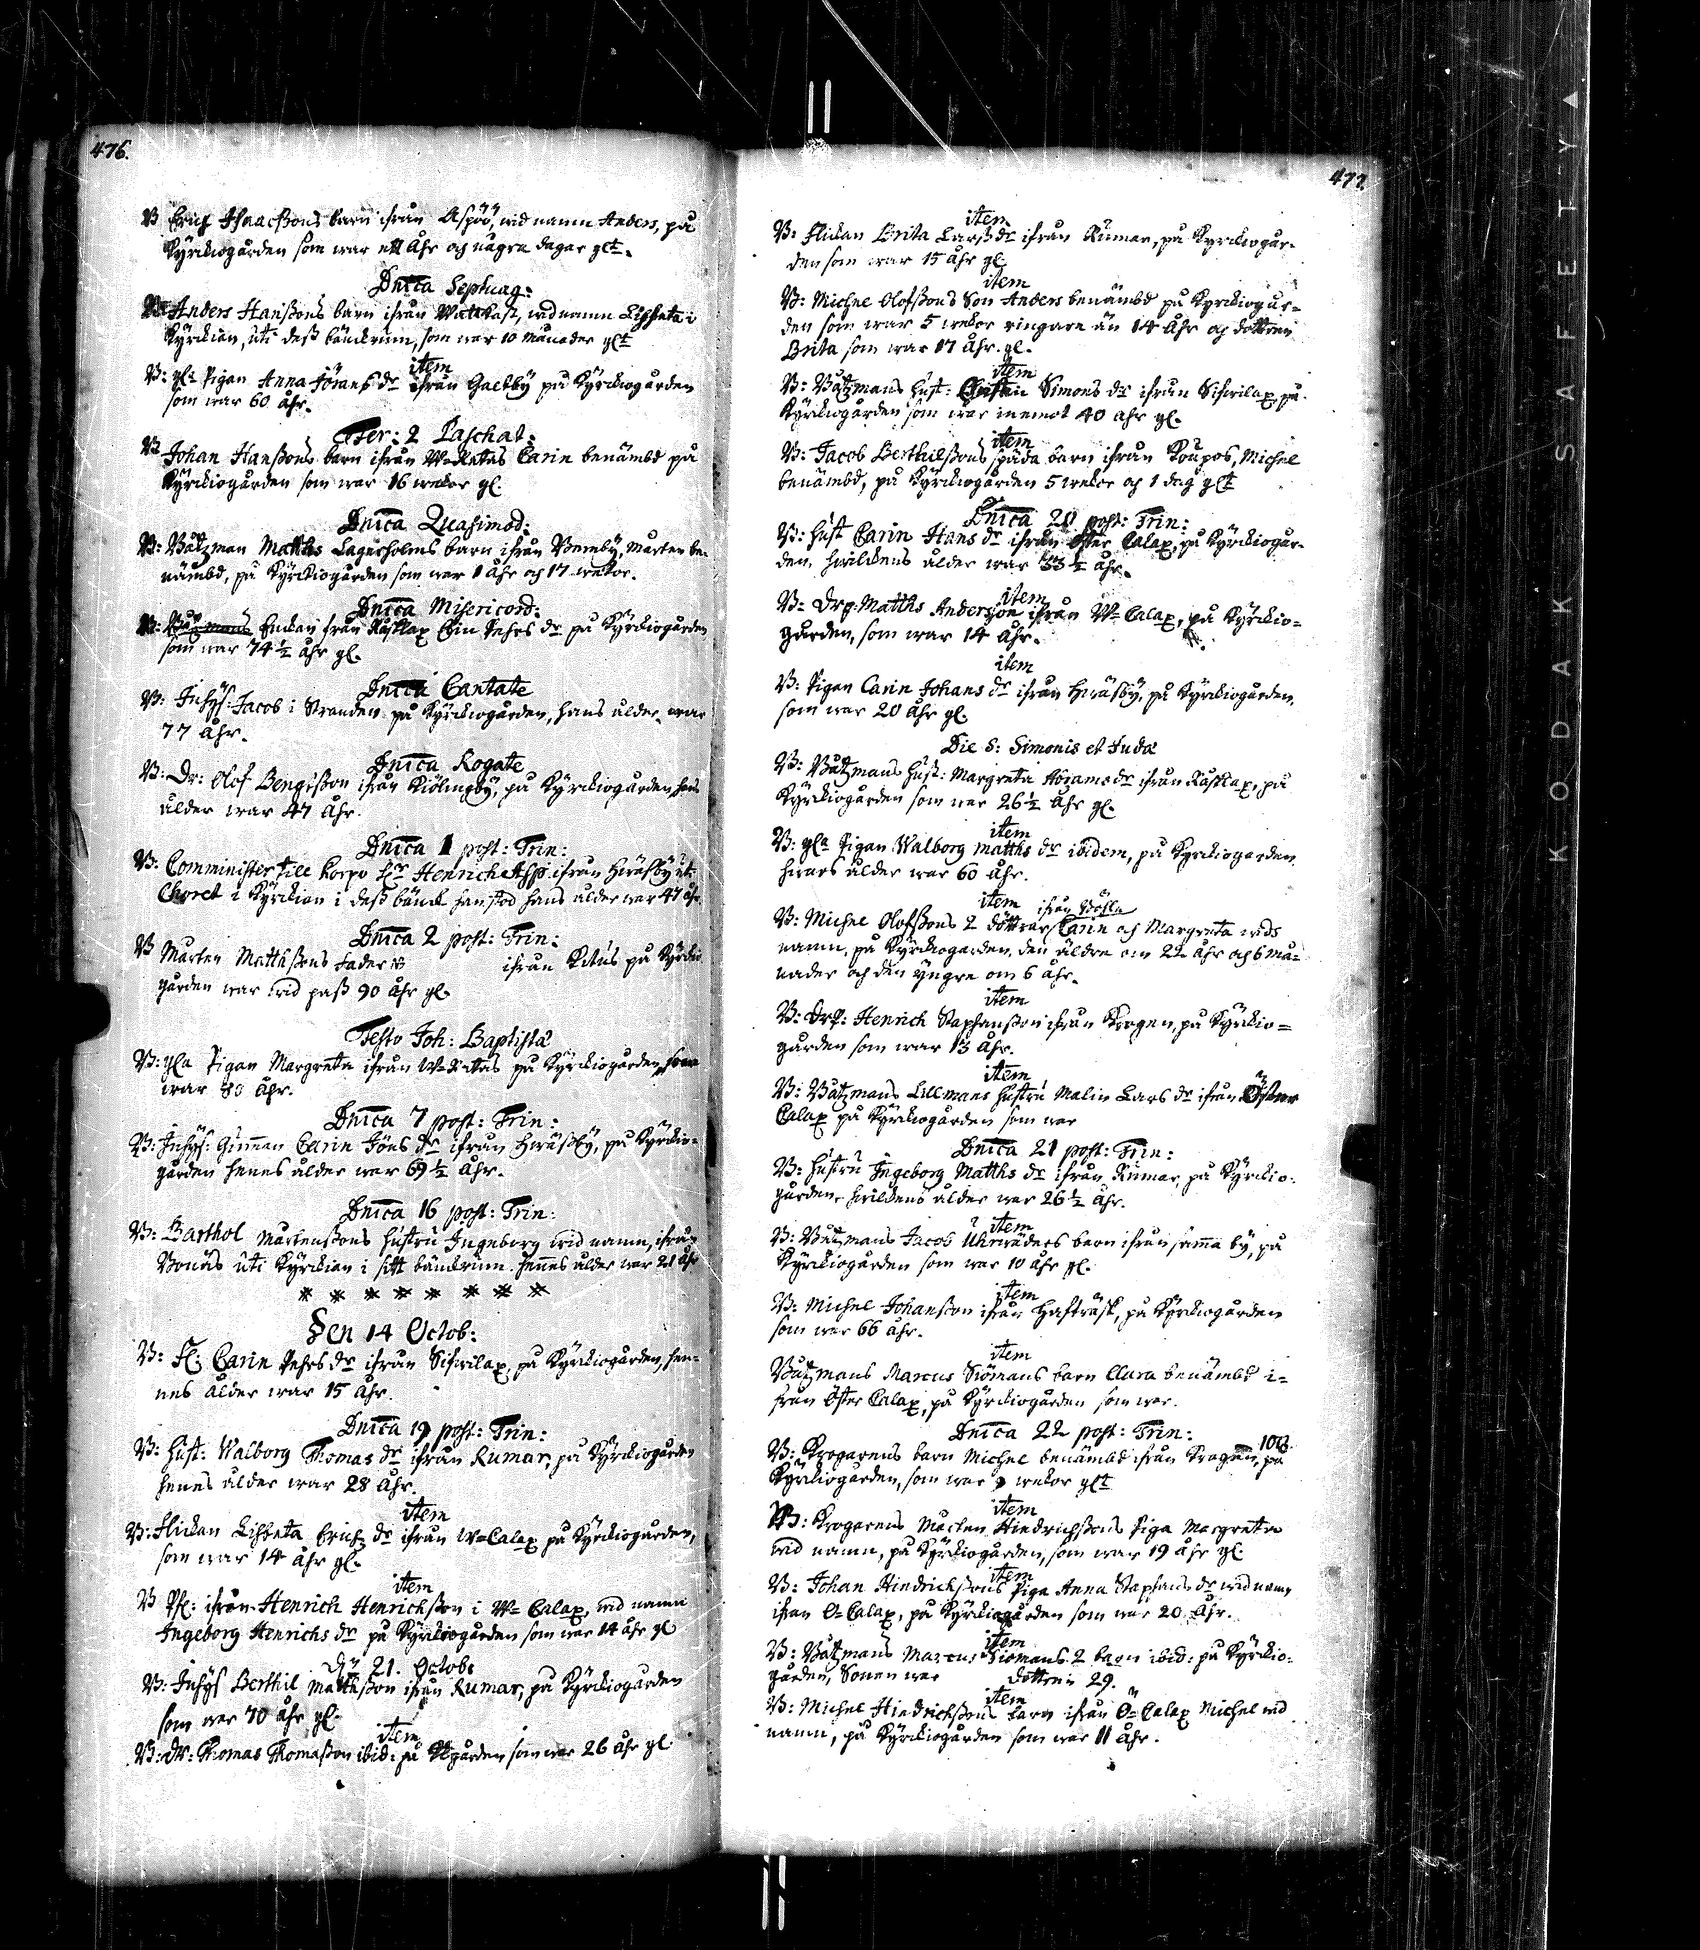 476.
B Erich Isaacßons barn ifrån Aspöö, wid namn Anders, på
Kyrkiogården som war ett åhr och några dagar glt.
Dnica Septuag:
Anders Hanßons barn ifrån Wattkast, wid namn Lisbeta i
Kyrkian, uti deß bänkrum, som war 10 månader glt
item
B: gla Pigan Anna Jörans dr ifrån Galtby på Kyrkiogården
som war 60 åhr.
Fer: 2 Paschat:
B Johan Hanßons barn ifrån W=Retais Carin benämbd på
Kyrkiogården som war 16 wekor gl.
Dnica Quasimod:
B: Båtzman Matths Lagerholms barn ifrån Bremby, Mårten be-
nämbd, på Kyrkiogården som war 1 åhr och 17 wekor.
Dnica Misericord:
B: Enckan från Råfflax Pehrs dr på Kyrkiogården
som war 74 1/2 åhr gl.
Dnica Cantate
B: Inhys: Jacob i Stranden på Kyrkiogården, hans ålder war
77 åhr.
Dnica Rogate
B: Dr: Olof Bengtßon ifrån Kiölingby, på Kyrkiogården, hans
ålder war 47 åhr.
Dnica 1 post: Trin:
B: Comminister till Korpo hr Henrich Asp ifrån Hwäsby uti
Choret i Kyrkian i deß bänk han stod hans ålder war 47 åhr.
Dnica 2 post: Trin:
B Mårten Matthßons fader ifrån Retais på Kyrkio
gården war wid paß 90 åhr gl.
Festo Joh: Baptistæ
B: gla Pigan Margreta ifrån W=Retais på Kyrkiogården, som
war 80 åhr.
Dnica 7 post: Trin:
B: Inhys: Gumman Carin Jöns dr ifrån Hwäsby, på Kyrkio-
gården hennes ålder war 69 1/2 åhr.
Dnica 16 post: Trin:
B: Barthol Mårtenßons hustru Ingeborg wid namn, ifrån
Bonäs uti Kyrkian i sitt bänkrum. hennes ålder war 21 åhr
* * * * * * * *
Den 14 Octob:
B: Fl: Carin Pehrs dr ifrån Sisirilax, på Kyrkiogården, hen-
nes ålder war 15 åhr.
Dnica 19 post: Trin:
B: Hust: Walborg Thomas dr ifrån Rumar, på Kyrkiogården
henes ålder war 28 åhr.
item
B: Flickan Lisbeta Erichs dr ifrån W=Calax på Kyrkiogården,
som war 14 åhr gl.
item
B Pfl: ifrån Henrich Henrichßon i W= Calax, wid namn
Ingeborg Henrichs dr på Kyrkiogården som war 14 åhr gl
dy 21. Octob:
B: Inhys Berthil Matthßon ifrån Rumar, på Kyrkiogården
som war 70 åhr gl.
item
B: Dr: Thomas Thomaßon ibid: på Kkgården som war 26 åhr gl
477.
item
B: Flickan Brita Larß dr ifrån Rumar, på Kyrkiogår-
den som war 15 åhr gl
item
B: Michel Olofßons Son Anders benämbd på Kyrkiogår-
den som war 5 wekor ringare än 14 åhr och dottren
Brita som war 17 åhr. gl.
item
B: Båtzmans Hust: Simons dr ifrån Sisirilax, på
Kyrkiogården som war inemot 40 åhr gl.
item
B: Jacob Berthilßons späda barn ifrån Roupos, Michel
benämbd, på Kyrkiogården 5 wekor och 1 dag glt
Dnica 20 post: Trin:
B: hust Carin Hans dr ifrån Öster Calax, på Kyrkiogår-
den, hwilckens ålder war 33 1/2 åhr.
item
B= Drg: Matths Anderson ifrån W= Calax, på Kyrkio=
gården, som war 14 åhr.
item
B: Pigan Carin Johans dr ifrån Hwäsby, på Kyrkiogården,
som war 20 åhr gl.
Die S: Simonis et Judæ
B: Båtzmans hust: Margreta Abrams dr ifrån Råfflax, på
Kyrkiogården som war 26 1/2 åhr gl.
item
B: gla Pigan Walborg Matths dr ibidem, på Kyrkiogården
hwars ålder war 60 åhr.
item ifrån
B: Michel Olofßons 2 döttrar Carin och Margreta wids
namn, på Kyrkiogården, den äldre om 22 åhr och 6 må=
nader och den yngre om 6 åhr.
item
B: Drg: Henrich Staphanßon ifrån Krogen, på Kyrkio=
gården som war 13 åhr.
item
B: Båtzmans Lillmans hustru Malin Lars dr ifrån Öster
Calax på Kyrkiogården som war
Dnica 21 post: Trin:
B: hustru Ingeborg Matths dr ifrån Rumar, på Kyrkio-
gården, hwilckens ålder war 26 1/2 åhr.
item
B: Båtzmans Jacob Uhrwäders barn ifrån samma by, på
Kyrkiogården som war 10 åhr gl.
item
B: Michel Johanßon ifrån Hafträsk, på Kyrkiogården
som war 66 åhr.
item
Båtzmans Marcus Siömans barn Clara benämbd i-
från Öster Calax, på Kyrkiogården som war.
Dnica 22 post: Trin:
B: Krogarens barn Michel benämbd ifrån Krogen, på
Kyrkiogården, som war 9 wekor glt
item
B: Krogarens Mårten Hindrichßons Piga Margreta
wid namn, på Kyrkiogården, som war 19 åhr gl
item
B: Johan Hindrichßons Piga Anna Staphans dr wid namn
ifrån Ö= Calax, på Kyrkiogården som war 20 åhr.
item
B: Båtzmans Marcus Siömans 2 barn ibid: på Kyrkio-
gården, Sonen war dottren 29.
item
B: Michel Hindrichßons barn ifrån Ö= Calax Michel wid
namn, på Kyrkiogården som war 11 åhr.
KODAK SAFETY